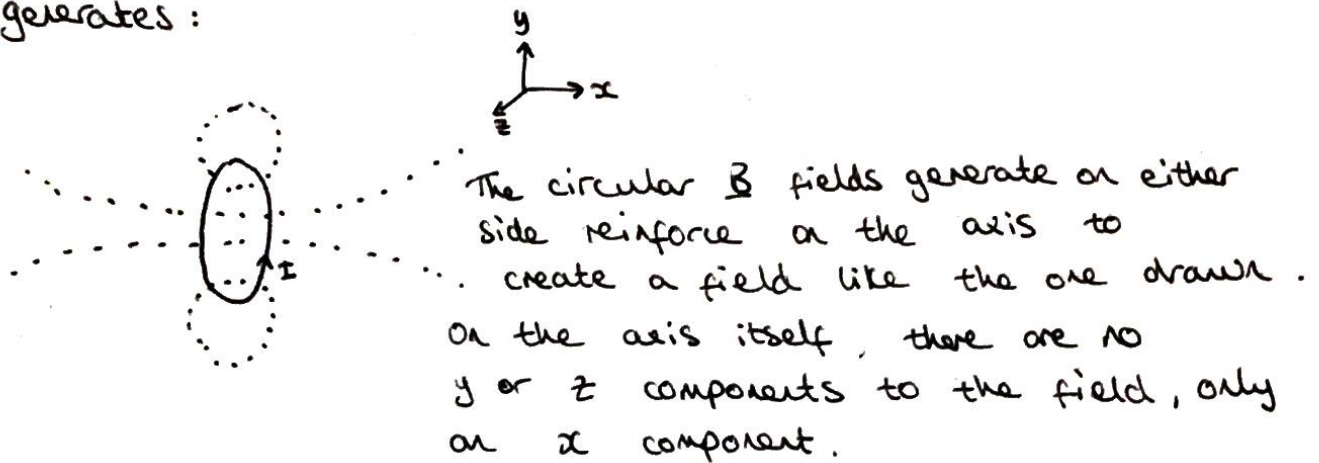 generates :
y
x
z
I
The circular B fields generate on either
side reinforce on the axis to
create a field like the one drawn .
On the axis itself , there are no
y or z components to the field , only
an x component .